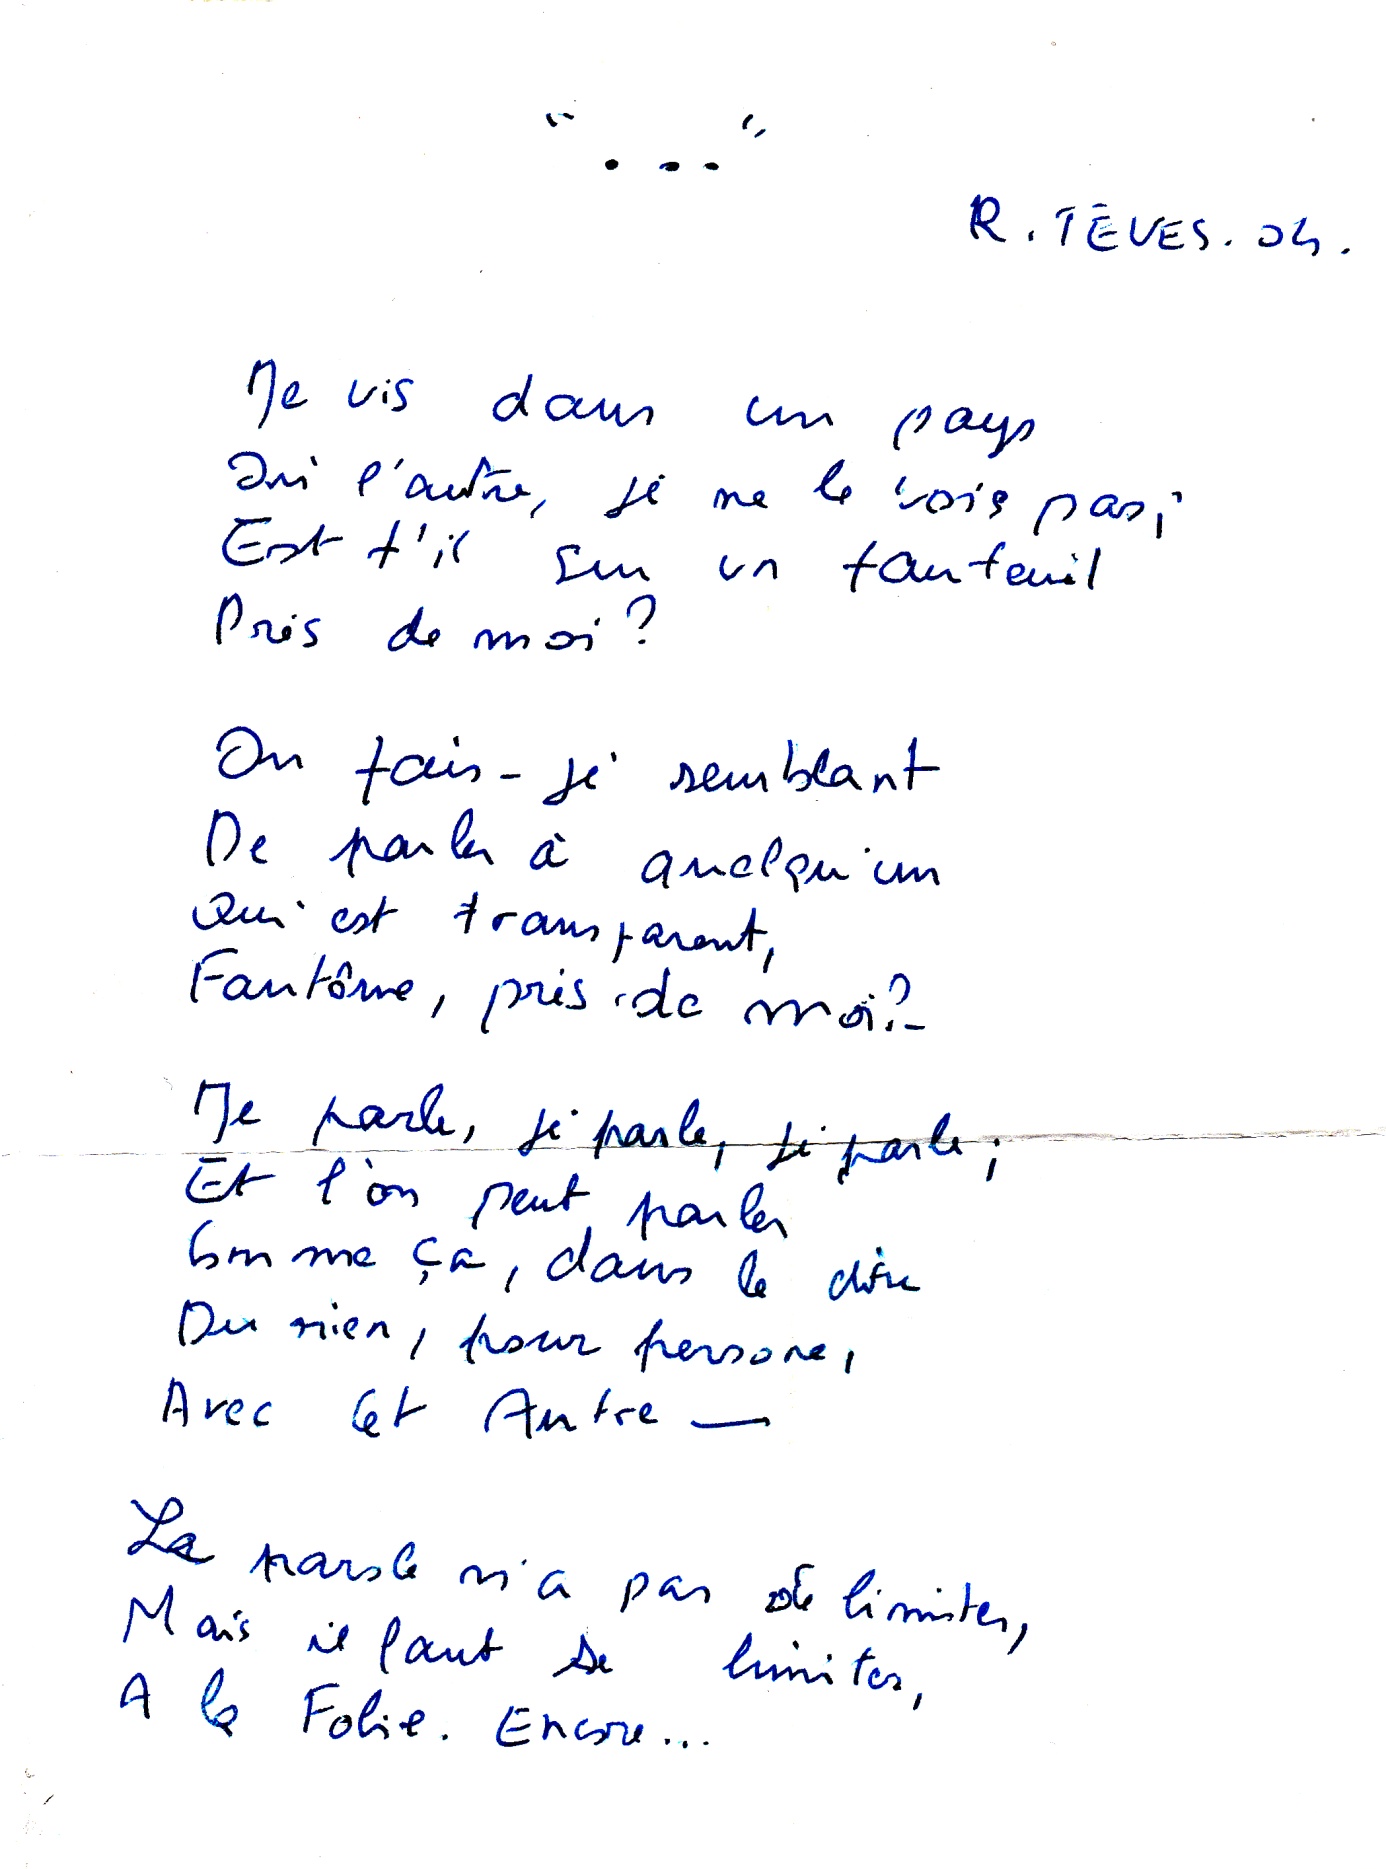 "..."
R. TÊVES. 04.
Je vis dans un pays
Où l'autre, je ne le vois pas,
Est t'il sur un fauteuil
Près de moi?
Ou fais-je semblant
De parler à quelqu'un
Qui est transparent,
Fantôme, près de moi?_
Je parle, je parle, je parle;
Et l'on peut parler
Comme ça, dans le dire
Du rien, pour persone,
Avec Cet Autre —
La parole n'a pas de limites,
Mais il faut se limiter,
A la Folie. Encore...